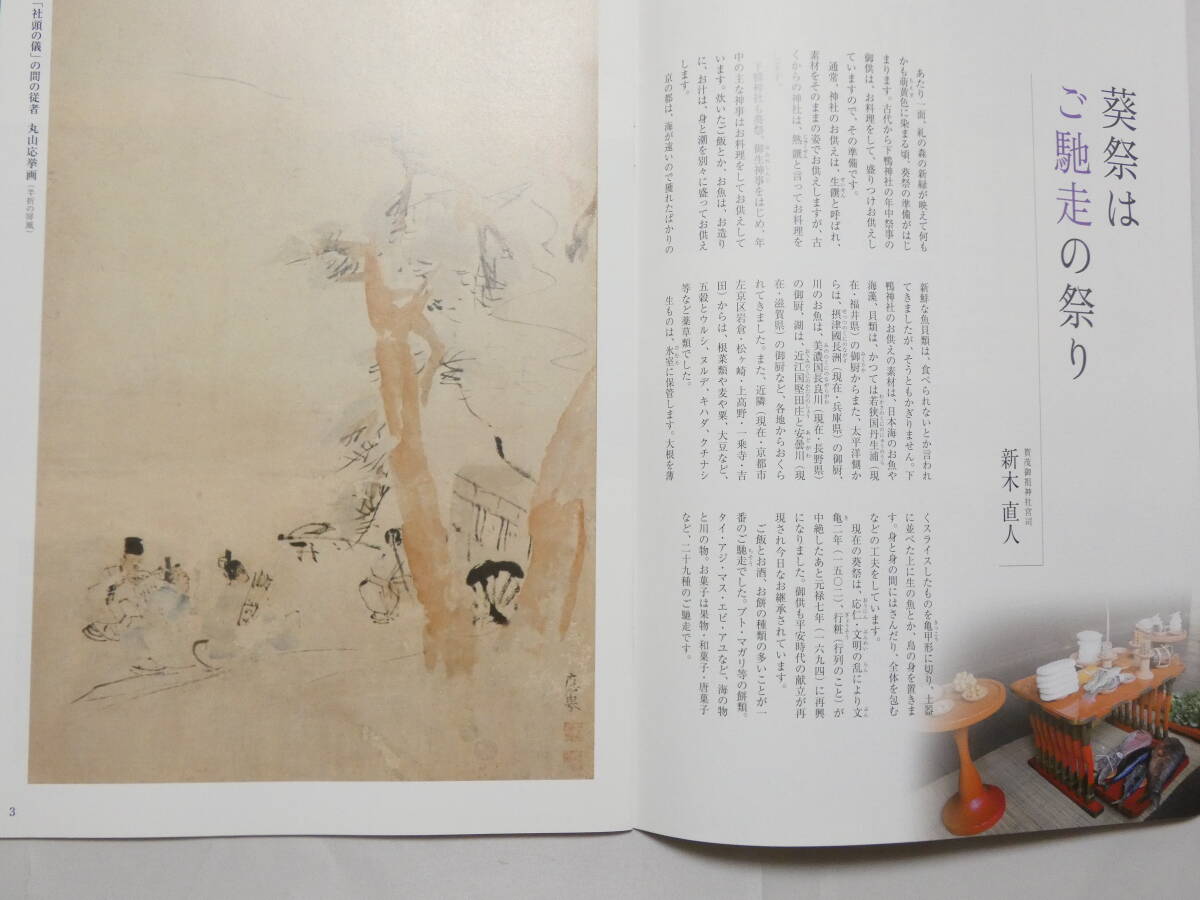 葵祭は
ご馳走の祭り
賀茂御祖神社宮司
新木 直人
あたり一面、糺の森の新緑が映えて何も
かも萌黄色に染まる頃、葵祭の準備がはじ
まります。古代から下鴨神社の年中祭事の
御供は、お料理をして、盛りつけお供えし
ていますので、その準備です。
通常、神社のお供えは、生饌と呼ばれ、
素材をそのままの姿でお供えしますが、古
くからの神社は、熟饌と言ってお料理を
下鴨神社も葵祭、御生神事をはじめ、年
中の主な神事はお料理をしてお供えして
います。炊いたご飯とか、お魚は、お造り
に、お汁は、身と潮を別々に盛ってお供え
します。
京の都は、海が遠いので獲れたばかりの
新鮮な魚貝類は、食べられないとか言われ
てきましたが、そうともかぎりません。下
鴨神社のお供えの素材は、日本海のお魚や
海藻、貝類は、かつては若狭国丹生浦(現
在・福井県)の御厨からまた、太平洋側か
らは、摂津國長洲(現在・兵庫県)の御厨、
川のお魚は、美濃国長良川(現在・長野県)
の御厨、湖は、近江国堅田庄と安曇川(現
在・滋賀県)の御厨など、各地からおくら
れてきました。また、近隣(現在・京都市
左京区岩倉・松ヶ崎・上高野・一乗寺・吉
田)からは、根菜類や麦や粟、大豆など、
五穀とウルシ、ヌルデ、キハダ、クチナシ
等など薬草類でした。
生ものは、氷室に保管します。大根を薄
くスライスしたものを亀甲形に切り、土器
に並べた上に生の魚とか、鳥の身を置きま
す。身と身の間にはさんだり、全体を包む
などの工夫をしています。
現在の葵祭は、応仁・文明の乱により文
亀二年(一五〇二)、行粧(行列のこと)が
中絶したあと元禄七年(一六九四)に再興
になりました。御供も平安時代の献立が再
現され今日なお継承されています。
ご飯とお酒、お餅の種類の多いことが一
番のご馳走でした。ブト・マガリ等の餅類。
タイ・アジ・マス・エビ・アユなど、海の物
と川の物。お菓子は果物・和菓子・唐菓子
など、二十九種のご馳走です。
「社頭の儀」の間の従者 丸山応挙画(半折の屏風)
應擧
3